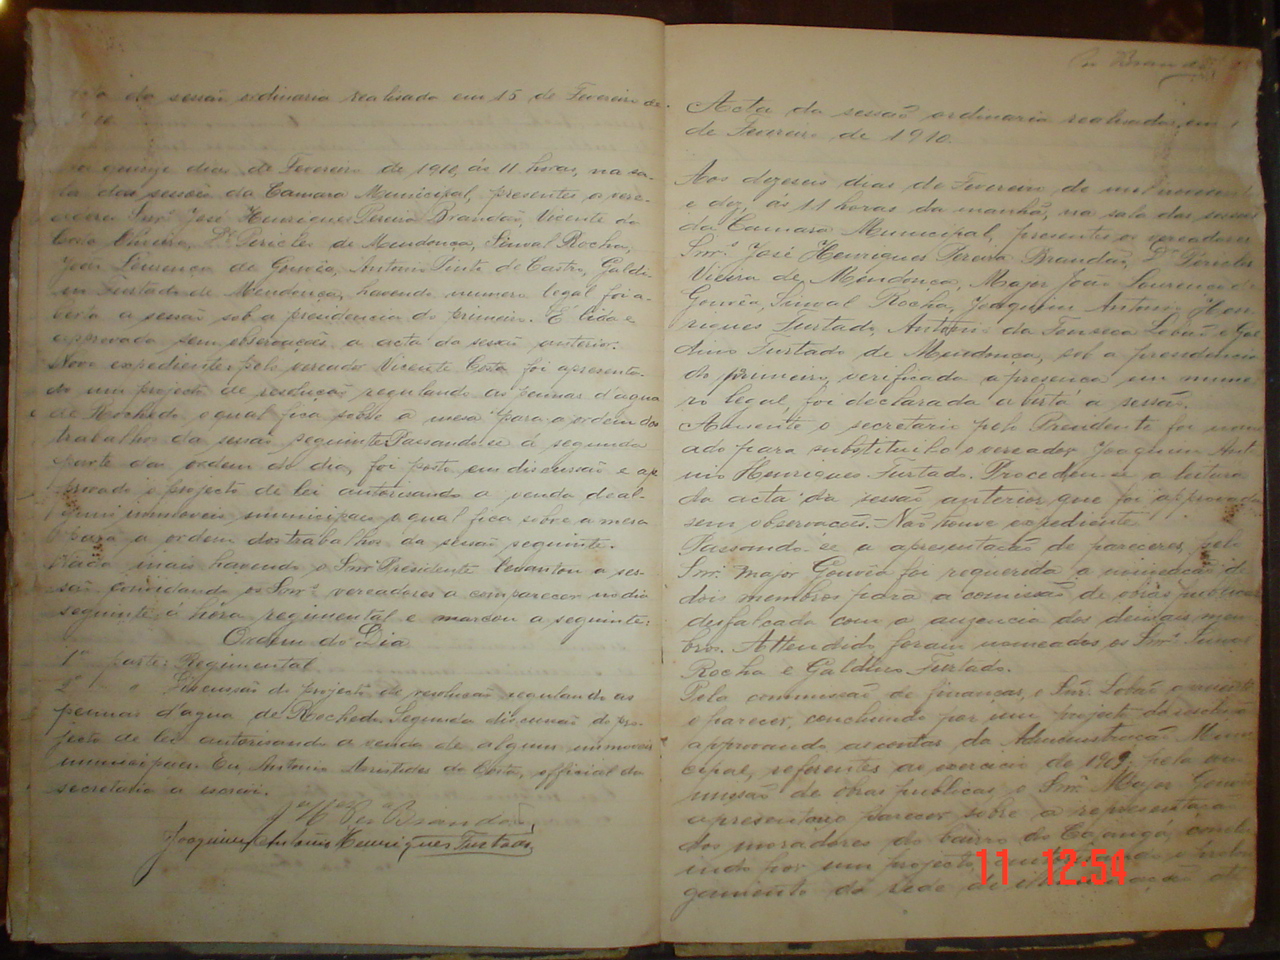 da sessão ordinaria realisada em 15 de Fevereiro de
quinze dias de Fevereiro de 1910, ás 11 horas, na sa-
la das sessões da Camara Municipal, presentes o vere-
adores Snrs. José Henriques Pereira Brandão, Vicente da
Costa Oliveira, Dr. Pericles de Mendonça, Sinval Rocha,
João Lourenço de Gouvêa, Antonio Pinto de Castro, Galdi-
no Furtado de Mendonça, havendo numero legal foi a-
berta a sessão sob a presidencia do primeiro. É lida e
approvada sem observações a acta da sessão anterior.
No expediente, pelo vereador Vicente Costa foi apresenta-
do um projecto de resolução regulando as pennas d'agua
de Rochedo, o qual fica sobre a mesa para a ordem dos
trabalhos da sessão seguinte. Passando-se á segunda
parte da ordem do dia, foi posto em discussão e ap-
provado o projecto de lei autorisando a venda de al-
guns immoveis municipaes o qual fica sobre a mesa
para a ordem dos trabalhos da sessão seguinte.
Nada mais havendo o Snr. Presidente levantou a ses-
são convidando os Snrs. vereadores a comparecer no dia
seguinte á hora regimental e marcou a seguinte:
Ordem do Dia
1ª parte: Regimental
2ª " " Discussão do projecto de resolução regulando as
pennas d'agua de Rochedo. Segunda discussão do pro-
jecto de lei autorisando a venda de alguns immoveis
municipaes. Eu, Antonio Aristides da Costa, official da
secretaria a escrevi.
J. H. Per. Brandão
Joaquim Antonio Henriques Furtado
Brandão
Acta da sessão ordinaria realisada em 1
de Fevereiro de 1910.
Aos dezeseis dias de Fevereiro de mil novecentos
e dez, ás 11 horas da manhã, na sala das sessões
da Camara Municipal, presentes os vereadores
Snrs. José Henriques Pereira Brandão, Dr. Pericles
Vieira de Mendonça, Major João Lourenço de
Gouvêa, Sinval Rocha, Joaquim Antonio Hen-
riques Furtado, Antonio da Fonseca Lobão e Gal-
dino Furtado de Mendonça, sob a presidencia
do primeiro, verificada a presença em nume-
ro legal, foi declarada aberta a sessão.
Ausente o secretario pelo Presidente foi nome-
ado para substituil-o o vereador Joaquim Anto-
nio Henriques Furtado. Procedeu-se a leitura
da acta da sessão anterior que foi approvada
sem observações. Não houve expediente.
Passando-se a apresentação de pareceres, pelo
Snr. Major Gouvêa foi requerida a nomeação de
dois membros para a comissão de obras publicas
desfalcada com a auzencia dos demais mem-
bros. Attendido foram nomeados os Snrs. Sinval
Rocha e Galdino Furtado.
Pela commissão de finanças, o Snr. Lobão apresenta
o parecer, concluindo por um projecto de resolução
approvando as contas da Administração Muni-
cipal, referentes ao exercicio de 1909; pela com-
missão de obras publicas o Snr. Major Gouvêa
apresentou o parecer sobre a representação
dos moradores do bairro do conclu-
indo por um projecto o prolon-
gamento da rede de illuminação
11 12:54